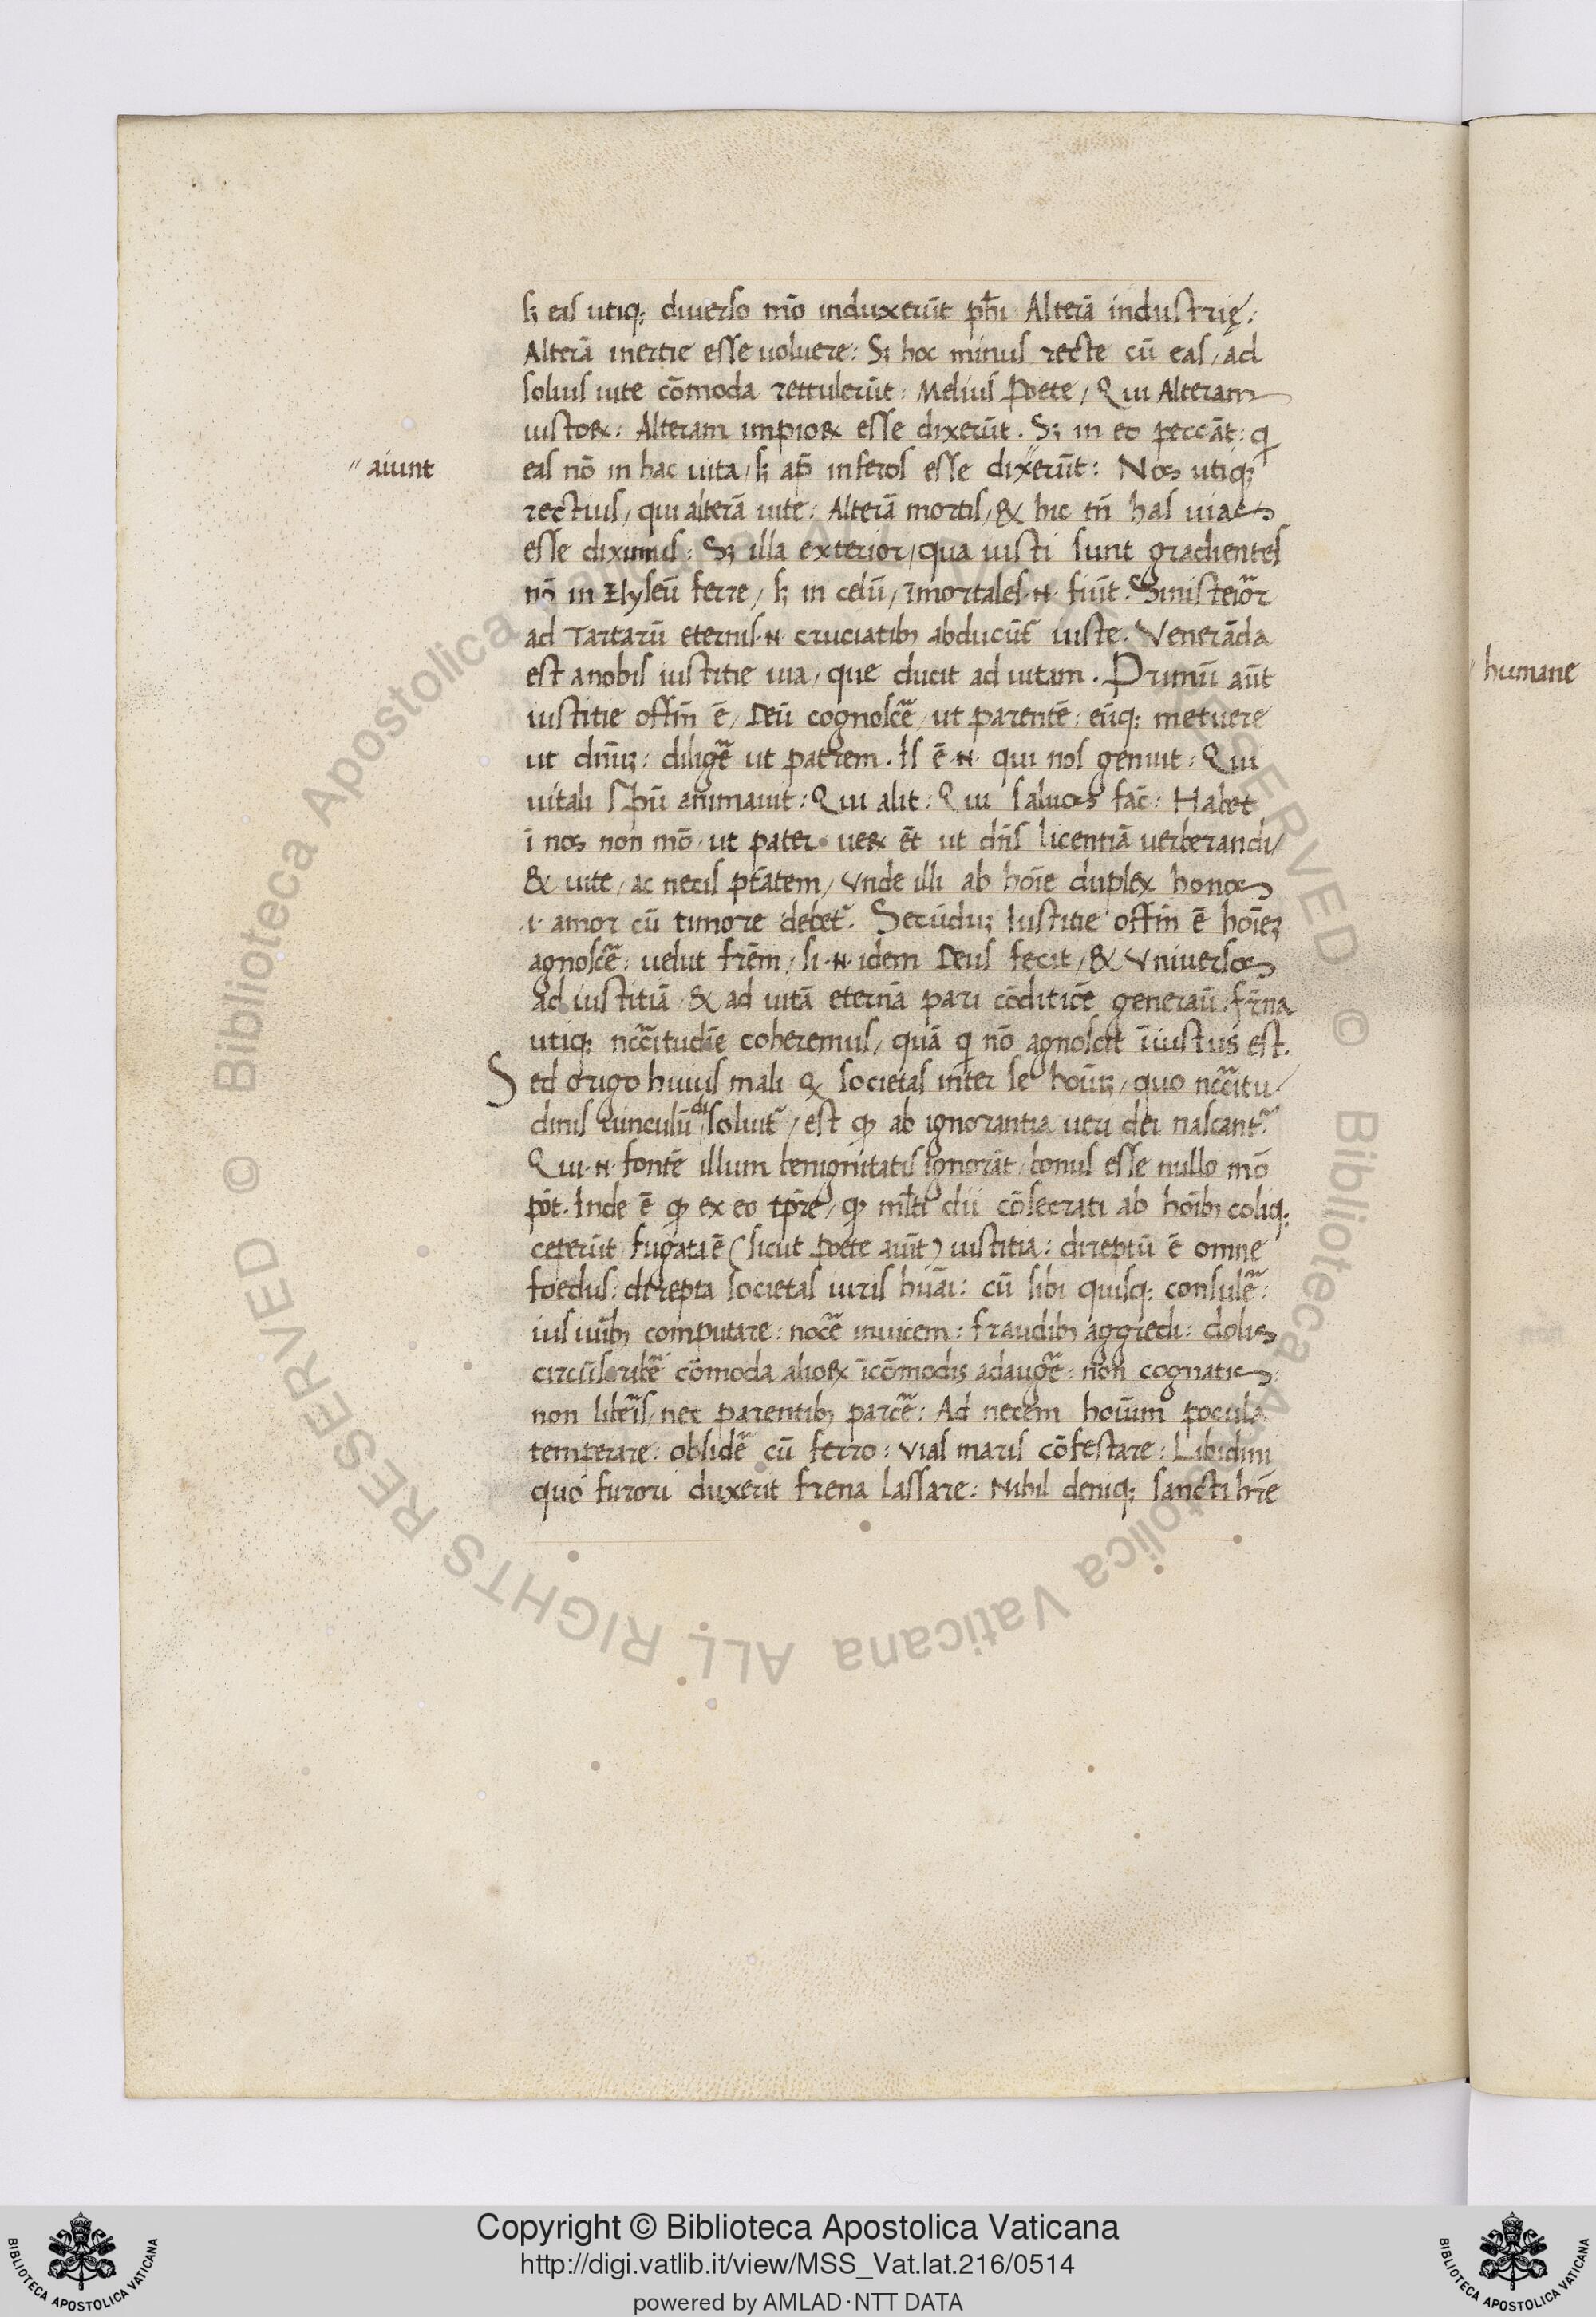 sꝫ eas utiqꝫ diuerso mō induxerūt ph̄i Alterā industrię:
Alterā inertie esse uoluere: Sꝫ hoc minus recte cū eas, ad
solius uite cōmoda rettulerūt: Melius Poete, Qui Alteram
iustoꝝ: Alteram impioꝝ esse dixerūt. Sꝫ in eo peccāt: ꝙ
" aiunt
eas nō in hac uita, sꝫ ap̄ inferos esse dixerūt: Nos utiqꝫ
rectius, qui alterā uite: Alterā mortis, & hic tn̄ has uias
esse diximus: Sꝫ illa exterior, qua iusti sunt gradientes
nō in Elyseū ferre, sꝫ in celū, īmortales .N. fiūt. Sinisterior
ad Tartarū eternis .N. cruciatibꝫ abducūt᷑ iuste. Venerāda
est anobis iustitie uia, que ducit ad uitam. Primū aūt
iustitie offm̄ ē, Deū cognosce᷑, ut parentē: eūqꝫ metuere
ut dn̄uꝫ: dilige᷑ ut patrem. Is ē .N. qui nos genuit: Qui
uitali Sp̄u animauit: Qui alit: Qui saluos fac̄: Habet
ī nos non mō, ut pater ueꝝ ēt ut dn̄s licentiā uerberandi,
& uite, ac necis ptātem, Vnde illi ab hoīe duplex honos
.i. amor cū timore debet᷑. Secūduꝫ Iustitie offm̄ ē hoīeꝫ
agnosce᷑: uelut frēm, si .N. idem Deus fecit, & Vniuersos
ad iustitiā & ad uitā eternā pari cōditiōe generauit. frn̄a
utiqꝫ nccītudīe coheremus, quā ꝙ nō agnoscit īiustus est.
Sed origo huius mali & societas inter se hoīūꝫ, quo nccītu/
dinis uinculū dissoluit᷑, est ꝙ ab ignorantia ueri dei nascant᷑.
Qui .N. fontē illum benignitatis ignorāt, bonus esse nullo mō
pōt. Inde ē ꝙ ex eo tpr̄e, ꝙ ml̄ti dii cōsecrati ab hoībꝫ coliqꝫ
ceperūt, fugata ē (sicut Poete aiūt) iustitia: direptū ē omne
foedus: direpta societas iuris hūāi: cū sibi quisqꝫ consule᷑:
ius uiribꝫ computare: noce᷑ inuicem: fraudibꝫ aggredi: dolis
circūscribe᷑ cōmoda alioꝝ īcōmodis adauge᷑: non cognatis:
non liberis, nec parentibꝫ parce᷑: Ad necem hoīum pocula
temperare: obside᷑ cū ferro: Vias maris cōfestare: Libidini
quo furori duxerit frena lassare: Nihil deniqꝫ sancti hr̄e
" humane
© Biblioteca Apostolica Vaticana ALL RIGHTS RESERVED © Biblioteca Apostolica Vaticana ALL RIGHTS RESERVED
BIBLIOTECA APOSTOLICA VATICANA
Copyright © Biblioteca Apostolica Vaticana
http://digi.vatlib.it/view/MSS_Vat.lat.216/0514
powered by AMLAD·NTT DATA
BIBLIOTECA APOSTOLICA VATICANA